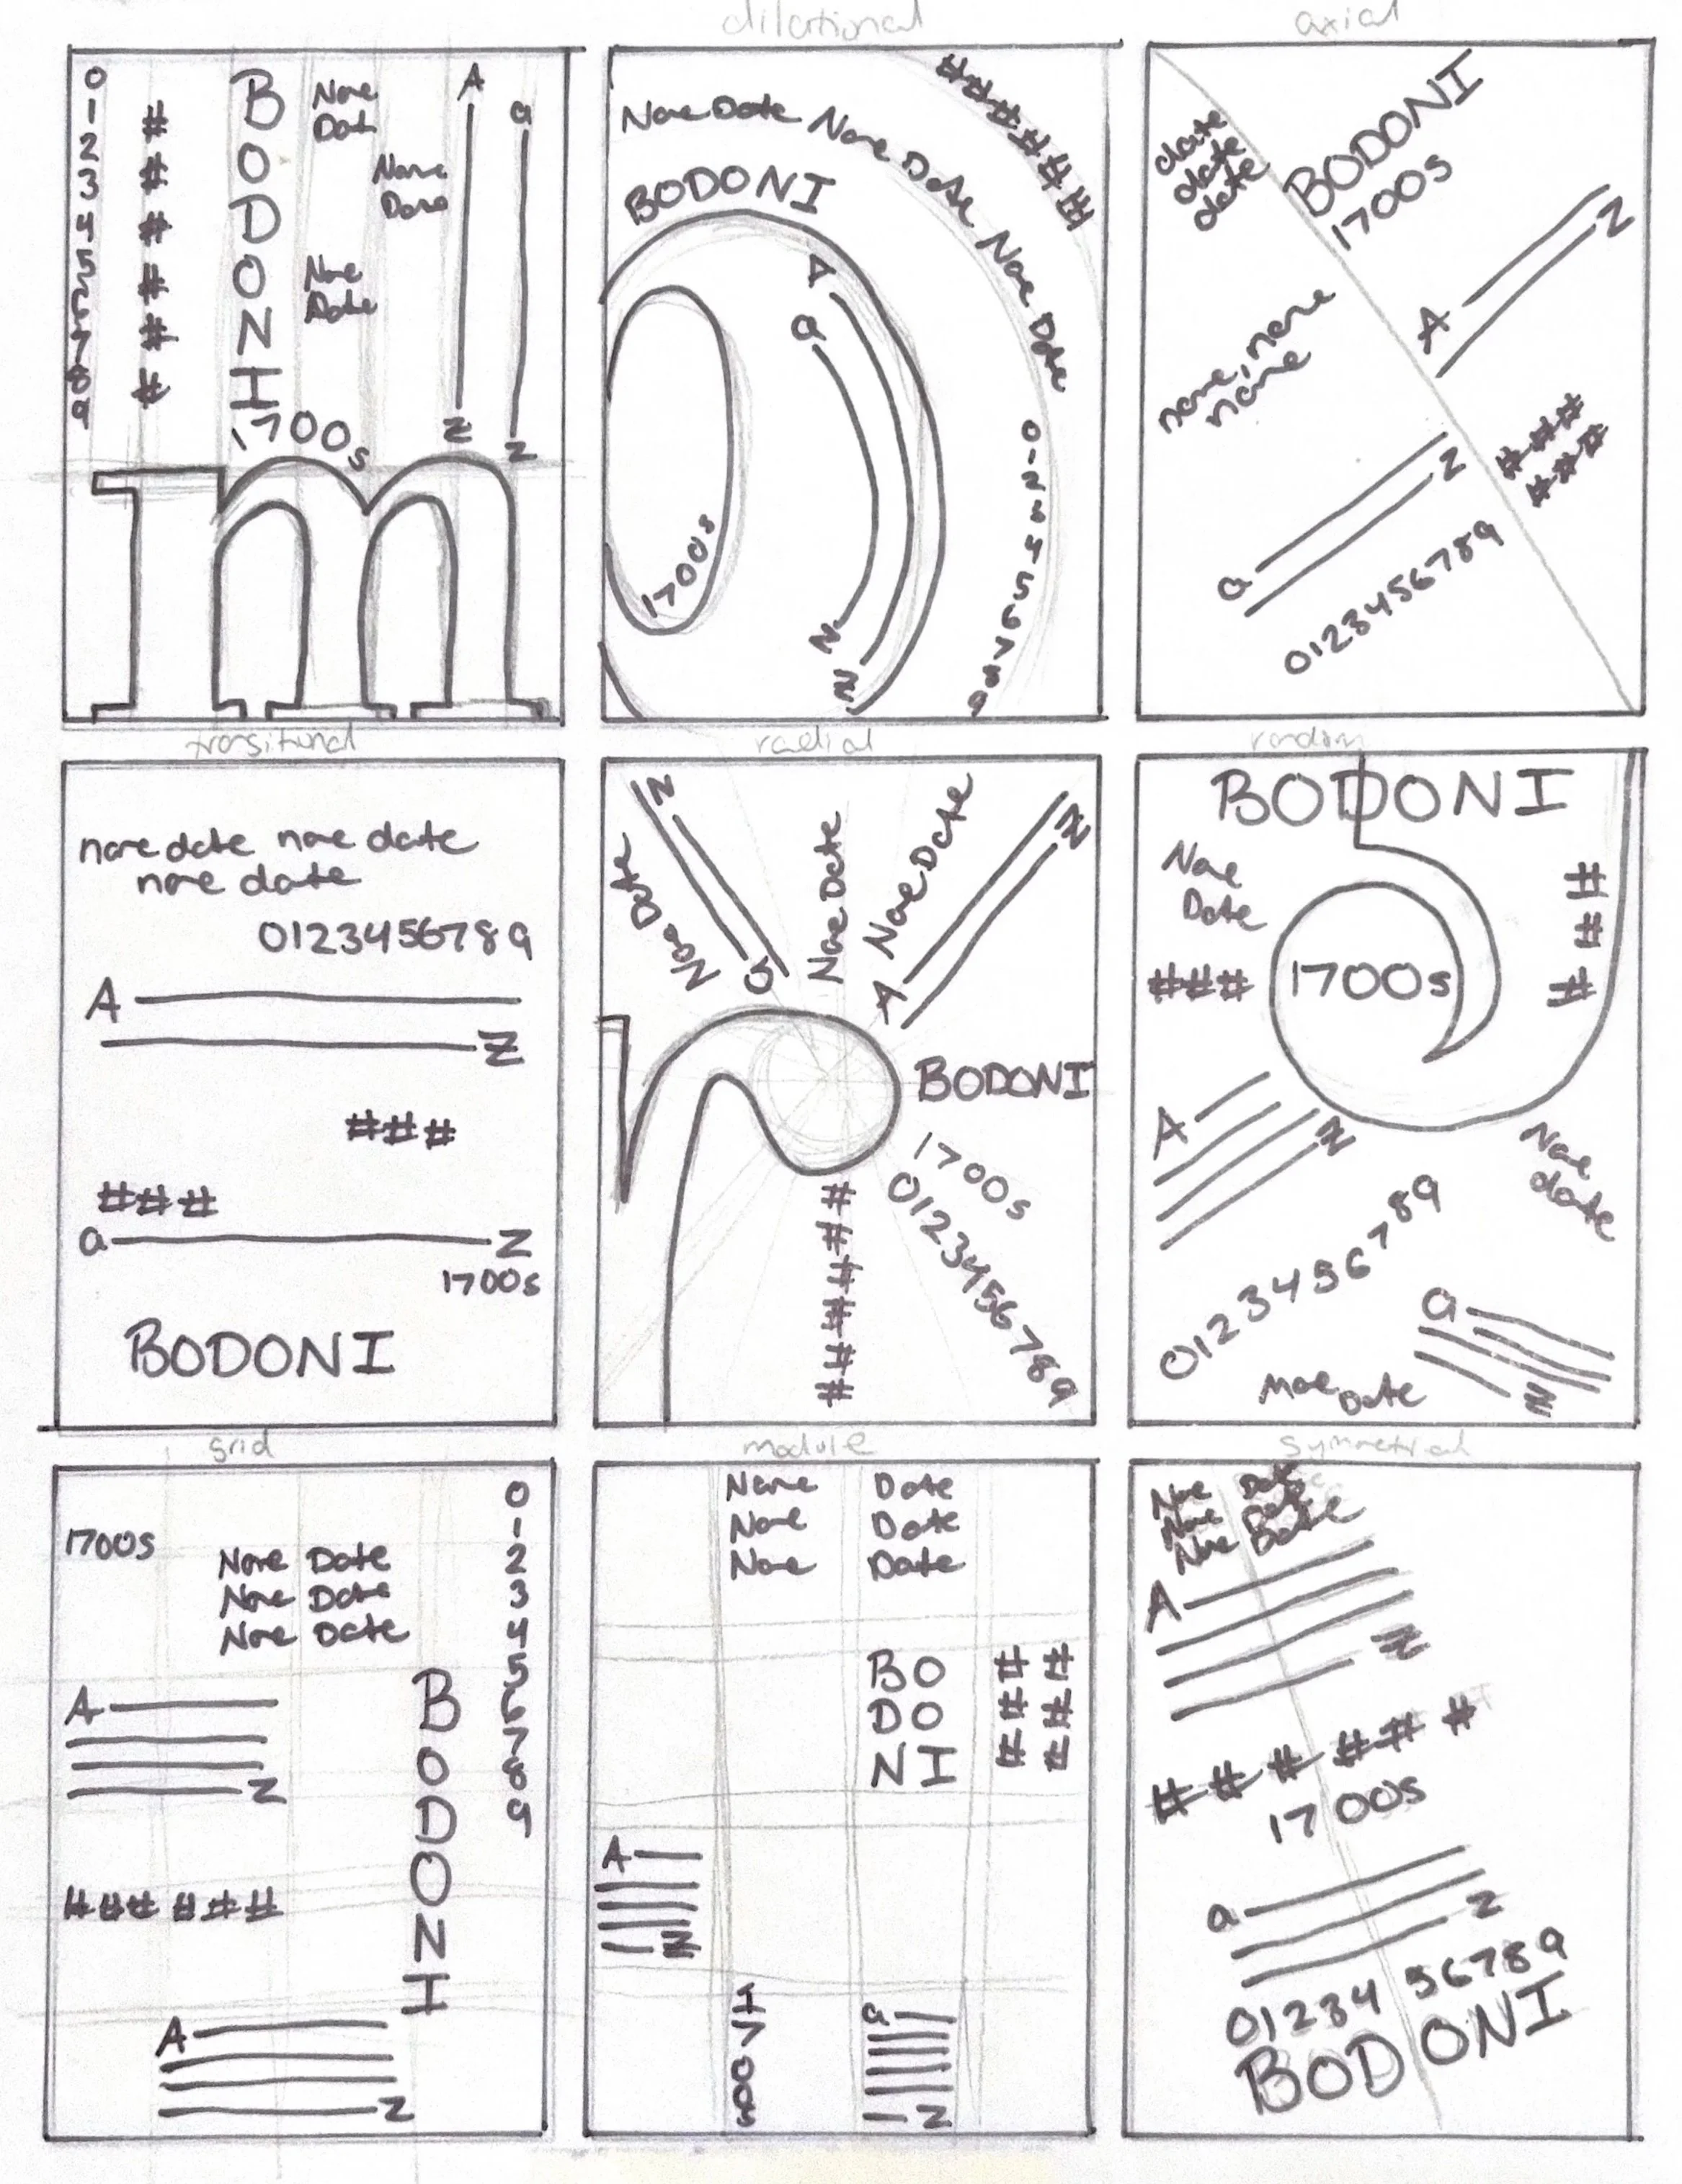 dilational
axial
0
1
2
3
4
5
6
7
8
9
#
#
#
#
#
#
B
O
D
O
N
I
1700s
Name
Dat
Name
Date
Name
Date
A
Z
a
z
m
Name Date Name Date Name Date
######
BODONI
A
Z
a
z
1700s
0
1
2
3
4
5
6
7
8
9
date
date
date
BODONI
1700s
A
Z
name, name
name
###
###
a
z
0123456789
transitional
radial
random
name date name date
name date
0123456789
A
Z
###
###
a
z
1700s
BODONI
Name Date
a
z
Name Date
Name Date
A
Z
r
BODONI
1700s
0123456789
#
#
#
#
#
#
BODONI
Name
Date
###
1700s
#
#
#
A
Z
Name
date
0123456789
a
z
Name Date
grid
module
symmetrical
1700s
Name Date
Name Date
Name Date
0
1
2
3
4
5
6
7
8
9
A
Z
B
O
D
O
N
I
### ###
A
Z
Name Date
Name Date
Name Date
BO
DO
NI
##
##
##
A
Z
1700s
a
z
Name Date
Name Date
Name Date
A
Z
######
1700s
a
z
01234 56789
BODONI